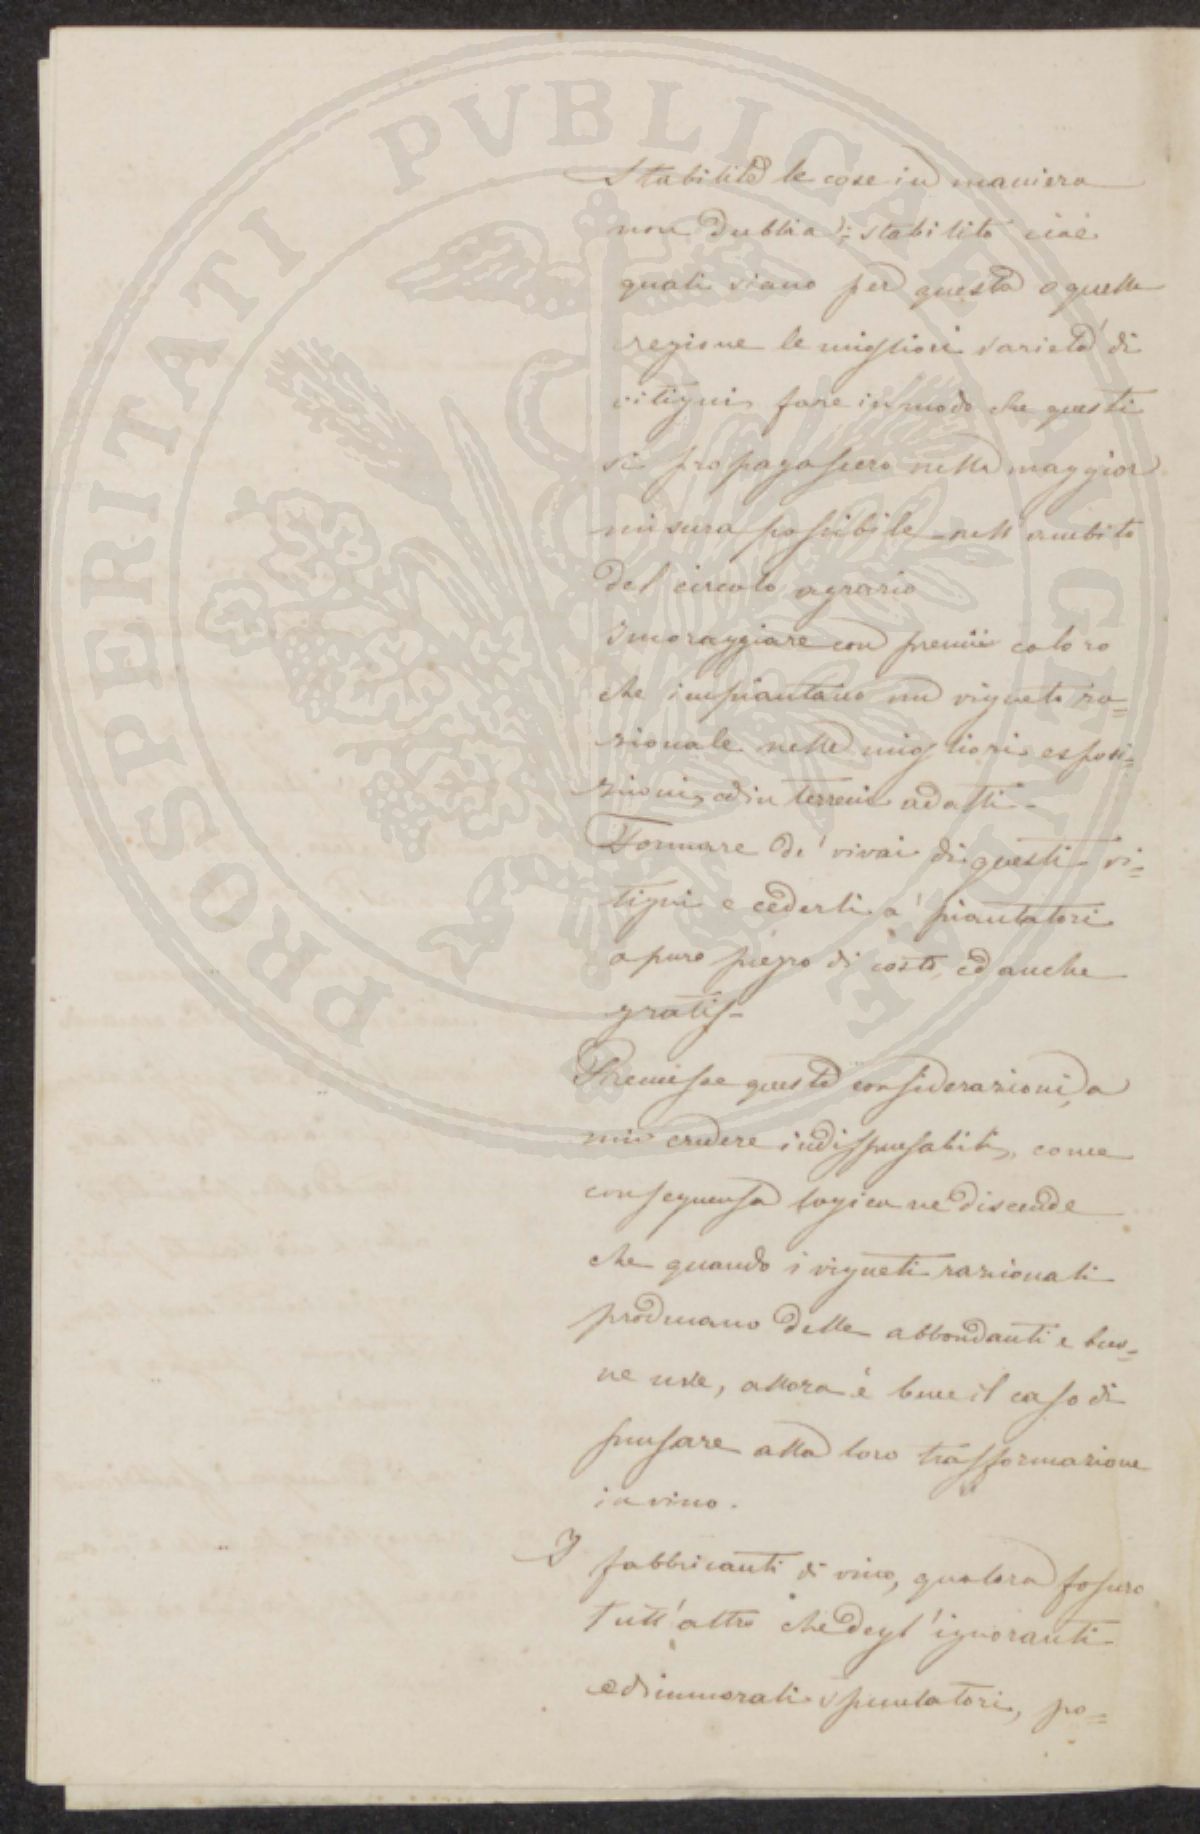 Stabilite le cose in maniera
non dubbia; stabilito cioè
quali siano per questa o quella
regione le migliori varietà di
vitigni, fare in modo che questi
si propagassero nella maggior
misura possibile nell'ambito
del circolo agrario
Incoraggiare con premii coloro
che impiantano un vigneto ra=
zionale nelle migliori esposi=
zioni, ed in terreni adatti-
Formare de' vivai di questi vi=
tigni e cederli a' piantatori
a puro prezzo di costo, ed anche
gratis-
Premesse queste considerazioni, a
mio credere indispensabili, come
conseguenza logica ne discende
che quando i vigneti razionali
producano delle abbondanti e buo=
ne uve, allora è bene il caso di
pensare alla loro trasformazione
in vino.
I fabbricanti di vino, qualora fossero
tutt'altro che degl'ignoranti
ed immorali speculatori, po=
PROSPERITATI PVBLICAE AVGENDAE